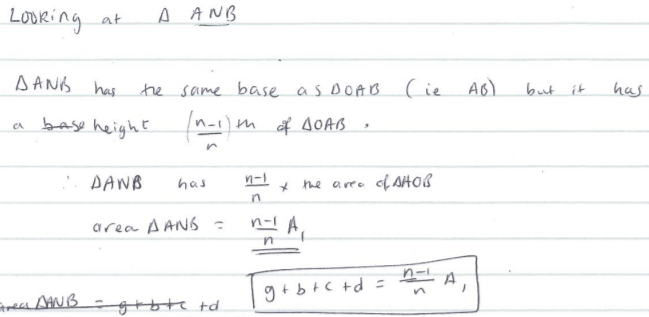 Looking at Δ ANB
ΔANB has the same base as ΔOAB (ie AB) but it has
a base height (n-1/n) th of ΔOAB.
∴ ΔANB has n-1/n x the area of ΔAOB
area ΔANB = n-1/n A₁
area ΔANB = g+b+c +d
g+b+c+d = n-1/n A₁